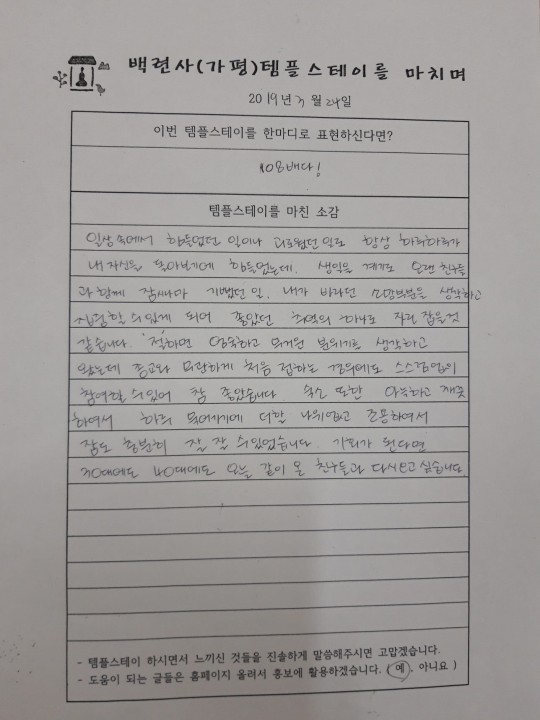 백련사(가평)템플스테이를 마치며
2019년 3월 24일
이번 템플스테이를 한마디로 표현하신다면?
108배다!
템플스테이를 마친 소감
일상 속에서 힘들었던 일이나 괴로웠던 일로 항상 하루하루가
내 자신을 돌아보기에 힘들었는데. 생일을 계기로 오랜 친구들
과 함께 잠시나마 기뻤던 일. 내가 바라던 소망부분을 생각하고
할 수 있게 되어 좋았던 추억의 하나로 자리 잡을 것
같습니다. 절하면 엄숙하고 무거운 분위기로 생각하고
왔는데 종교와 무관하게 처음 접하는 경우에도 스스럼없이
참여할 수 있어 참 좋았습니다. 숙소 또한 아늑하고 깨끗
하여서 하루 묵어가기에 더할 나위없고 조용하여서
잠도 충분히 잘 잘 수 있었습니다. 기회가 된다면
30대에도 40대에도 오늘 같이 온 친구들과 다시 오고 싶습니다.
- 템플스테이 하시면서 느끼신 것들을 진솔하게 말씀해주시면 고맙겠습니다.
- 도움이 되는 글들은 홈페이지 올려서 홍보에 활용하겠습니다. ( 예, 아니요 )